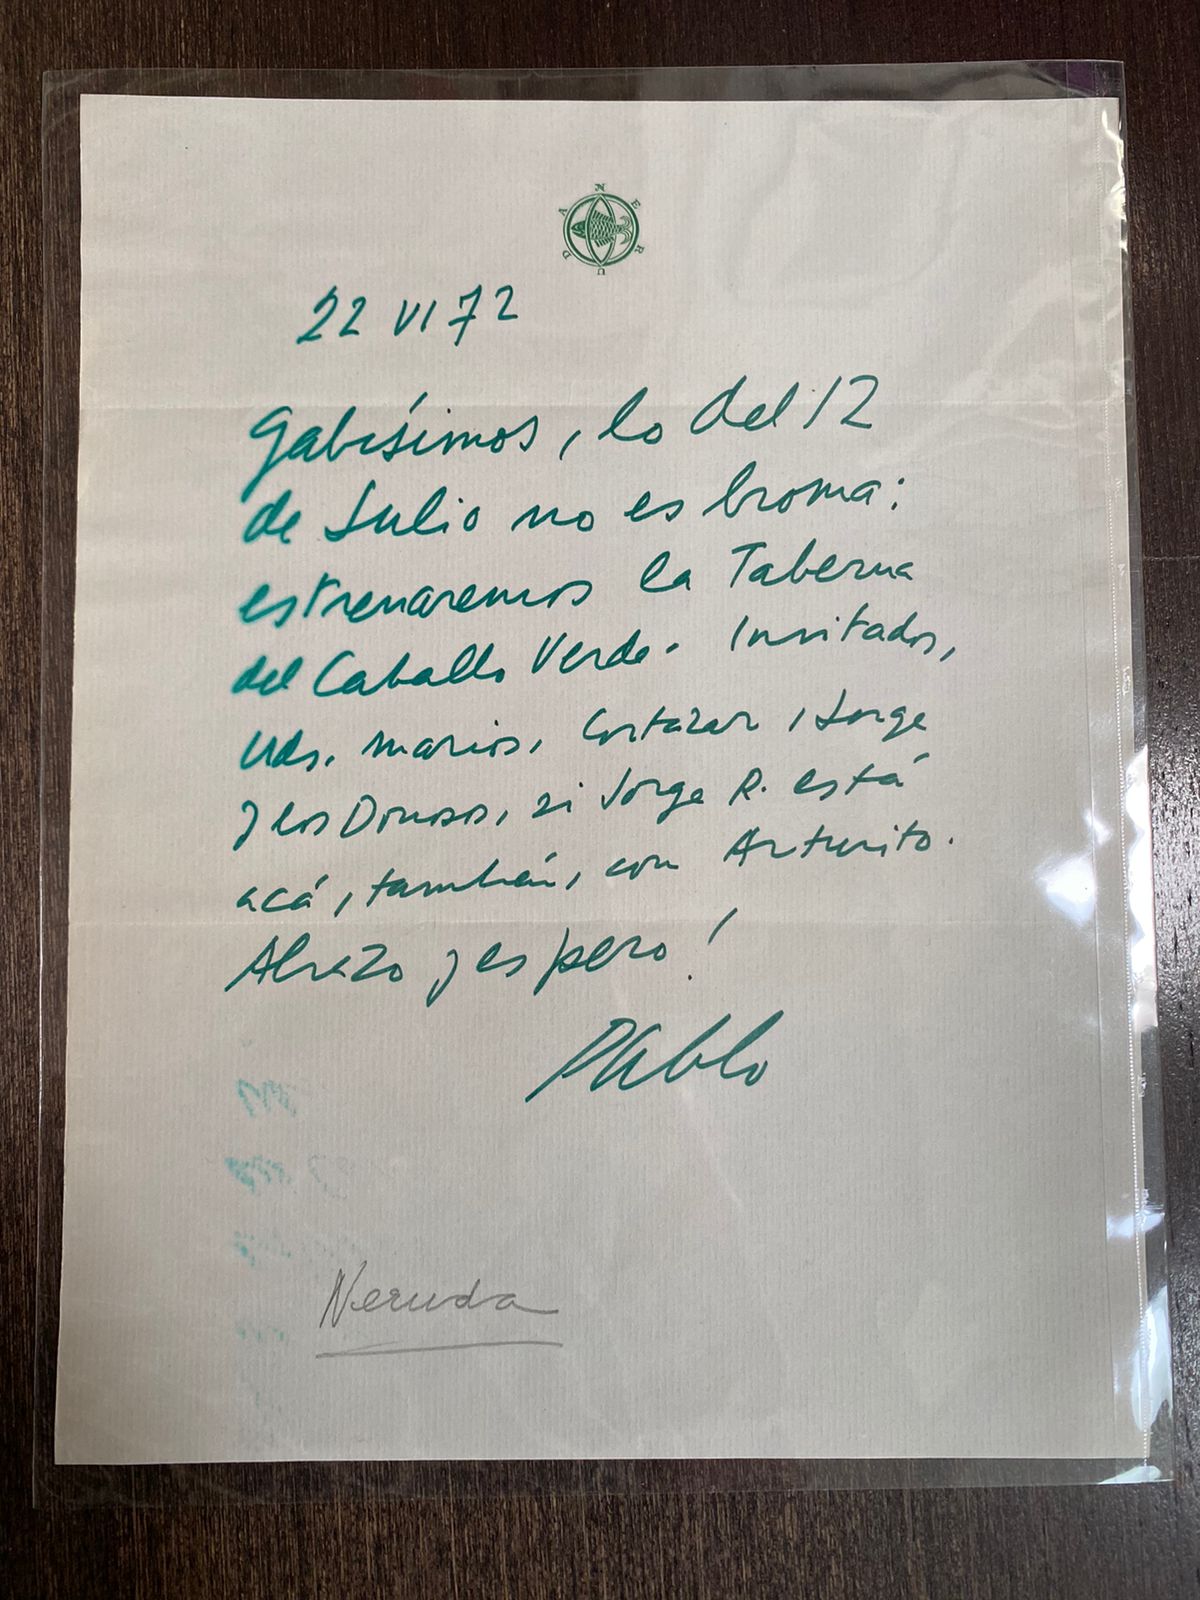 NERUDA
22 VI 72
Gabísimos, lo del 12
de Julio no es broma:
estrenaremos la Taberna
del Caballo Verde. Invitados,
Uds. Marios, Cortazar, Jorge
y los Donoso, si Jorge R. está
acá, también, con Arturito.
Abrazo y espero!
Pablo
Neruda